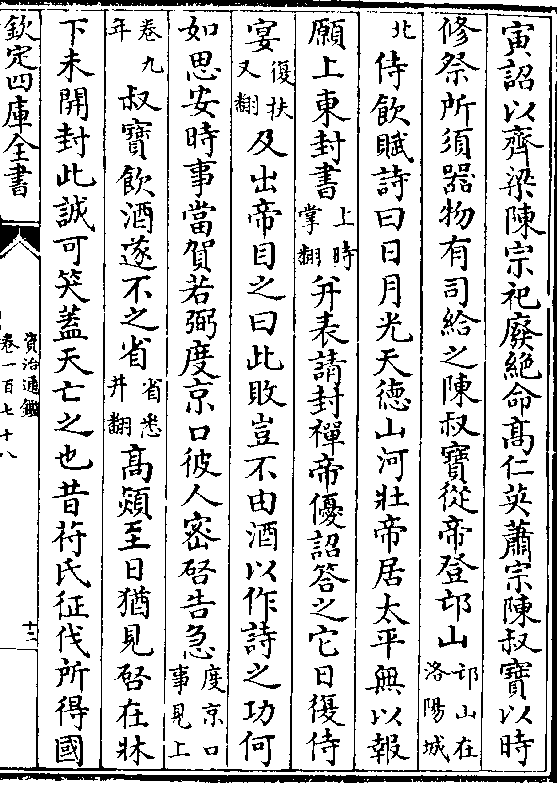 寅詔以齊梁陳宗祀廢絕命髙仁英蕭宗陳叔寶以時
修祭所須器物有司給之陳叔寶從帝登邙山邙山在洛陽城
北侍飲賦詩曰日月光天德山河壯帝居太平無以報
願上東封書上時掌翻并表請封禪帝優詔答之它日復侍
宴復扶又翻及出帝目之曰此敗豈不由酒以作詩之功何
如思安時事當賀若弼度京口彼人密啓告急度京口事見上
卷九年叔寶飲酒遂不之省省悉井翻髙熲至日猶見啓在牀
下未開封此誠可笑蓋天亡之也昔苻氏征伐所得國
欽定四庫全書
資治通鑑
卷一百七十八
十二